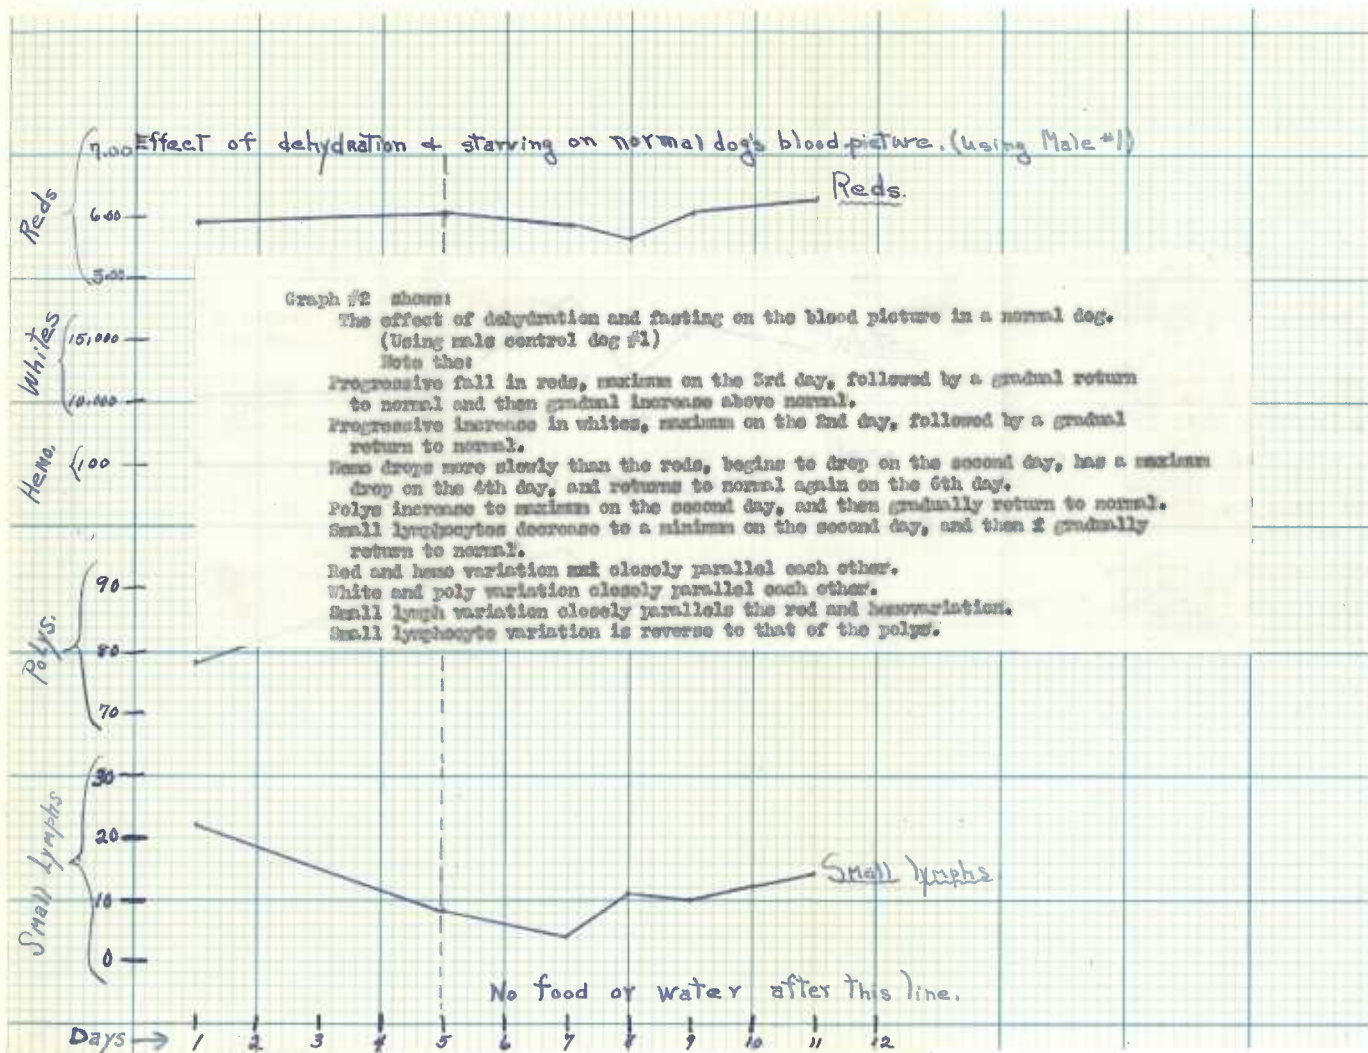 Effect of dehydration & starving on normal dog's blood picture. (Using Male #1)
7.00
Reds
6.00
5.00
Reds.
Graph #2 shows:
The effect of dehydration and fasting on the blood picture in a normal dog.
(Using male control dog #1)
Note the:
Progressive fall in reds, maximum on the 3rd day, followed by a gradual return
to normal and then gradual increase above normal.
Progressive increase in whites, maximum on the 2nd day, followed by a gradual
return to normal.
Hemo drops more slowly than the reds, begins to drop on the second day, has a maximum
drop on the 4th day, and returns to normal again on the 6th day.
Polys increase to maximum on the second day, and then gradually return to normal.
Small lymphocytes decrease to a minimum on the second day, and then gradually
return to normal.
Red and hemo variation closely parallel each other.
White and poly variation closely parallel each other.
Small lymph variation closely parallels the red and hemovariation.
Small lymphocyte variation is reverse to that of the polys.
Whites
15,000
10,000
Hemo.
100
Polys.
90
80
70
Small Lymphs
30
20
10
0
Small lymphs
No food or water after this line.
Days → 1 2 3 4 5 6 7 8 9 10 11 12